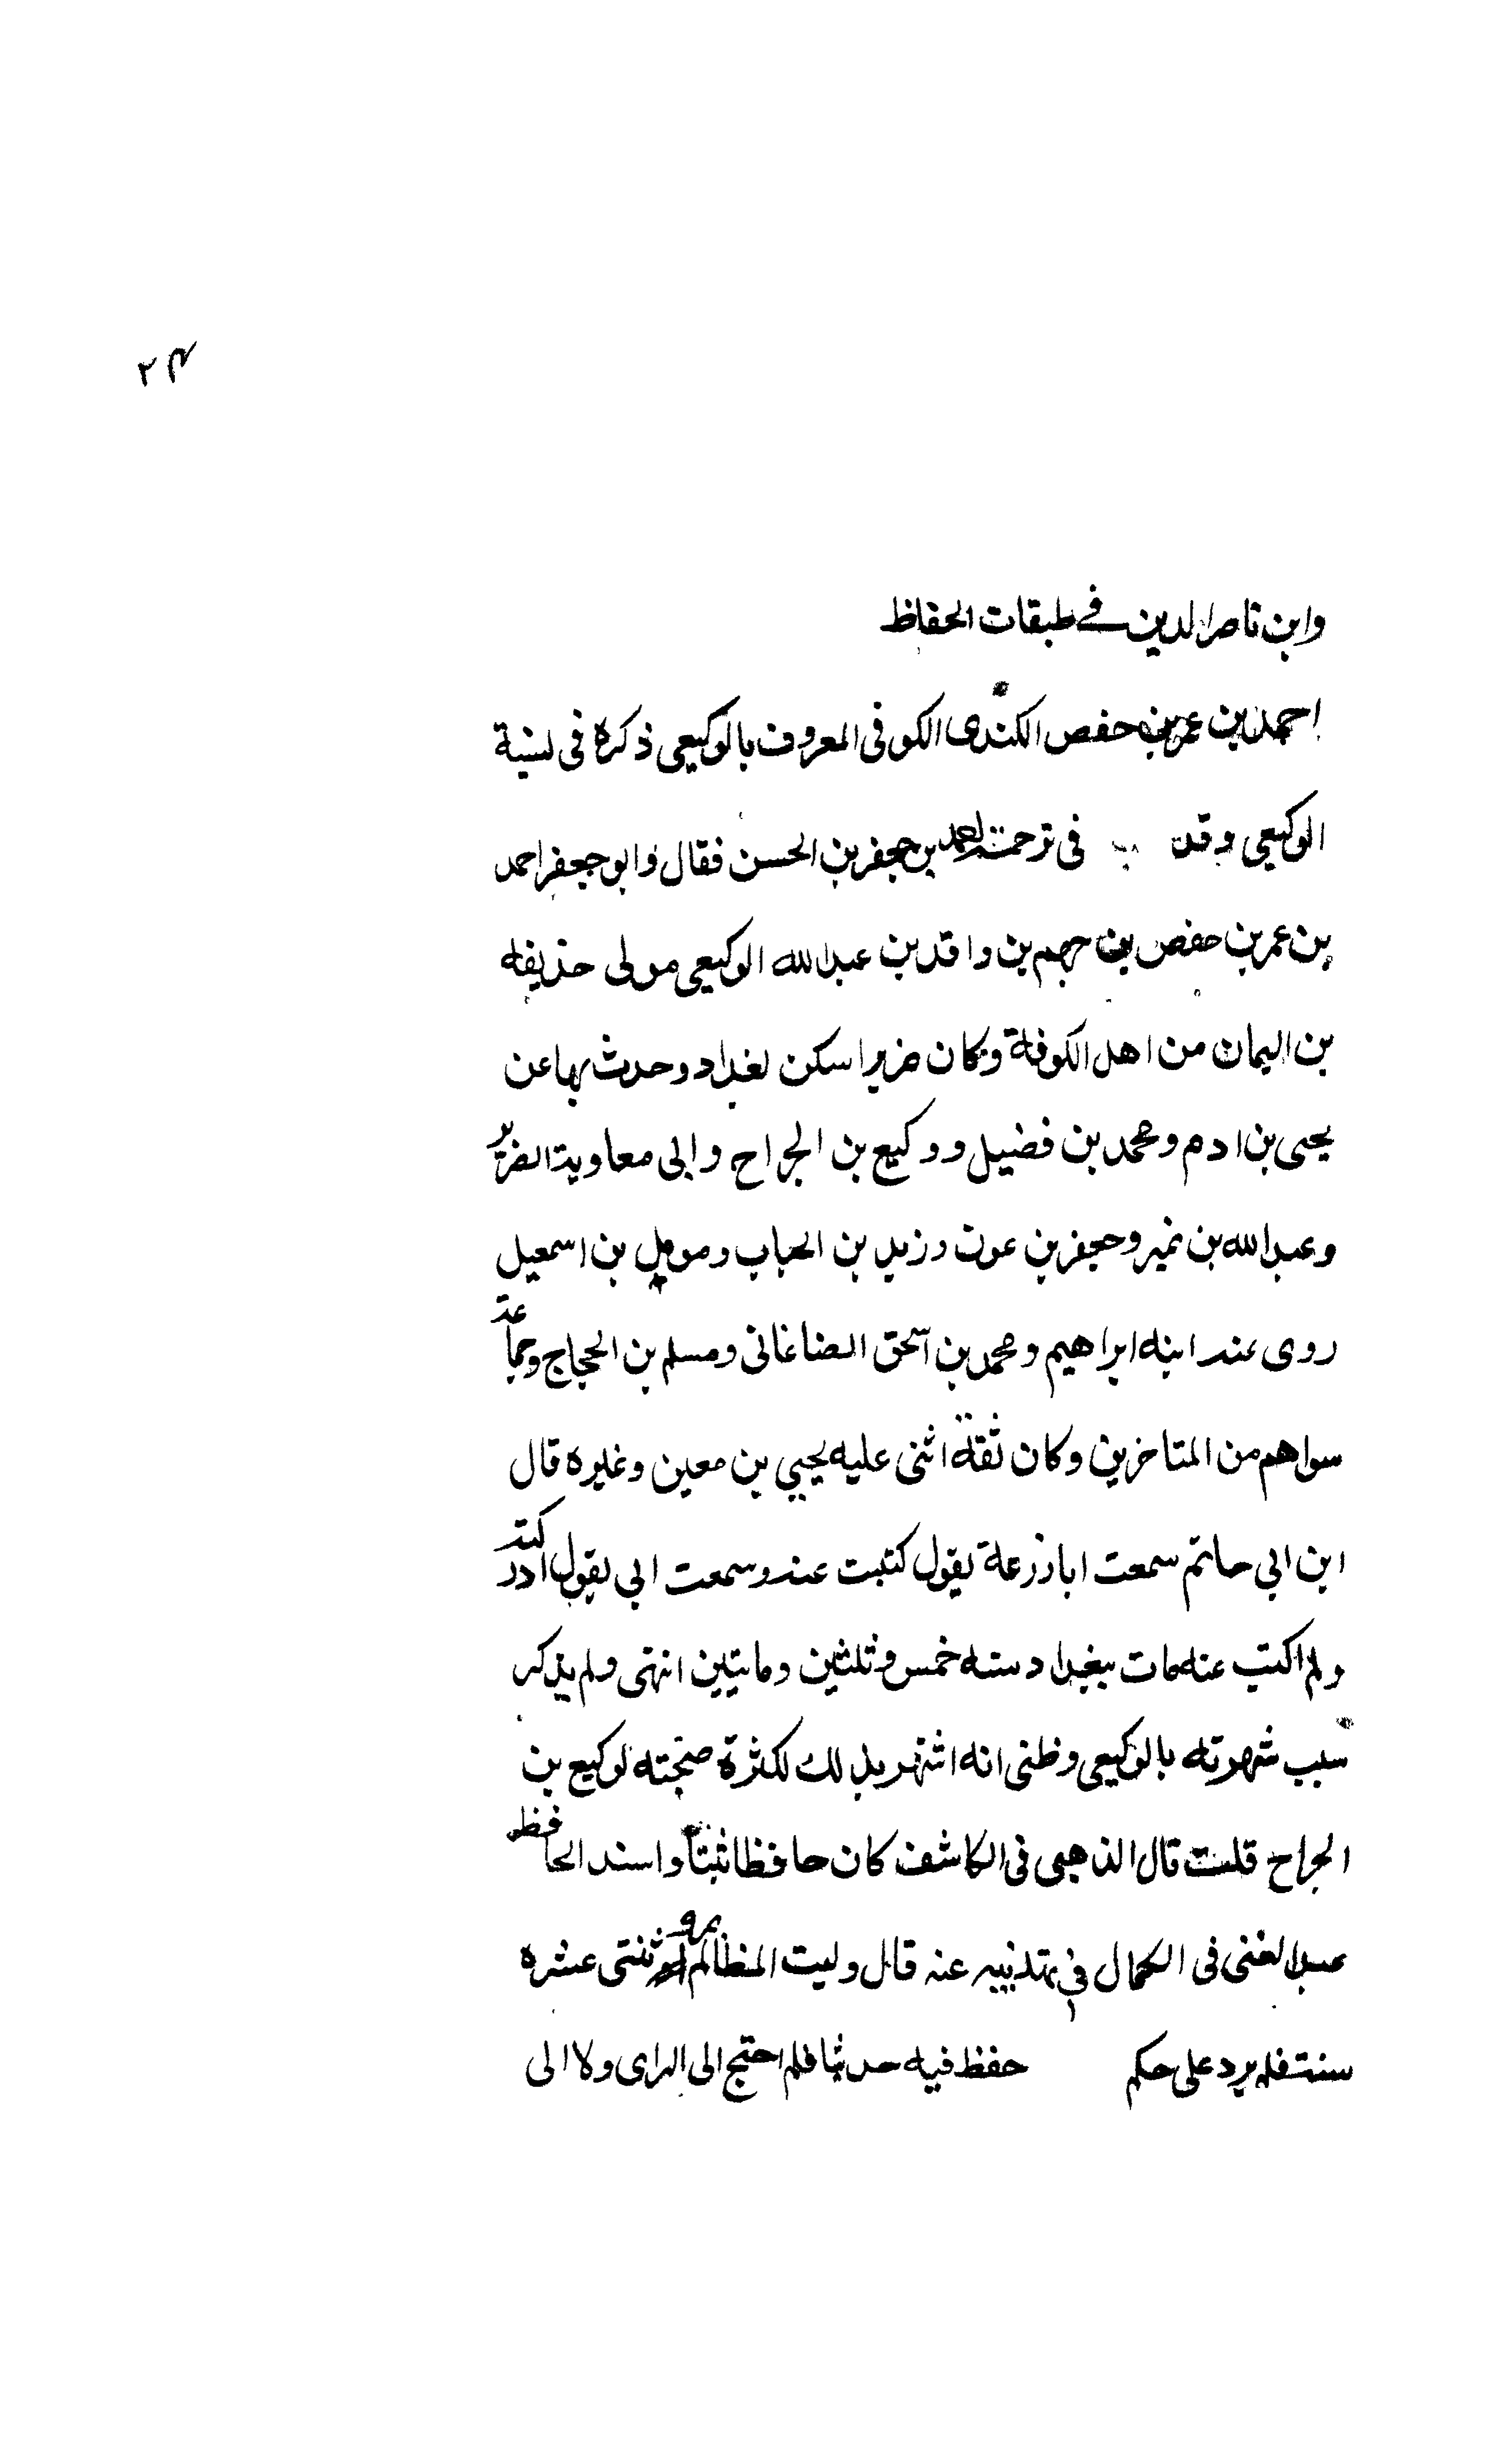 ٢٣
وابن ناصرالدين فے طبقات الحفاظ
احمد بن عمر بن حفص الكندى الكوفى المعروف بالوكيعي ذكره فى نسبة
الوكيعي وقد فى ترحمة احمد بن جعفر بن الحسن فقال وابو جعفر احمد
بن عمر بن حفص بن جهم بن واقد بن عبدالله الوكيعي مولى حذيفه
بن اليمان من اهل الكوفة وكان ضريرا سكن بغداد وحدث بها عن
يحيى بن ادم ومحمد بن فضيل ووكيع بن الجراح وابى معاوية الضرير
وعبدالله بن نمير وجعفر بن عون وزيد بن الحباب ومومل بن اسمعيل
روى عنه ابنه ابراهيم ومحمد بن اسحق الصاغانى ومسلم بن الحجاج وجماعة
سواهم من المتاخرين وكان ثقة اثنى عليه يحيي بن معين وغيره قال
ابن ابي حاتم سمعت ابا زرعة يقول كتبت عنه وسمعت ابي يقول ادركته
ولم اكتب عنه مات ببغداد سنه خمس وثلثين ومايتين انتهى ولم يذكر
سبب شهرته بالوكيعي وظنى انه اشتهر بذلك لكثرة صحبته لوكيع بن
الجراح قلت قال الذهبى فى الكاشف كان حافظا ثبتا واسند الحافظ
عبدالغنى فى الكمال فى تهذيبه عنه قال وليت المظالم بمرو ثنتى عشره
سنة فلم يرد على حكم حفظ فيه حديثا فلم احتج الى الراى ولا الى